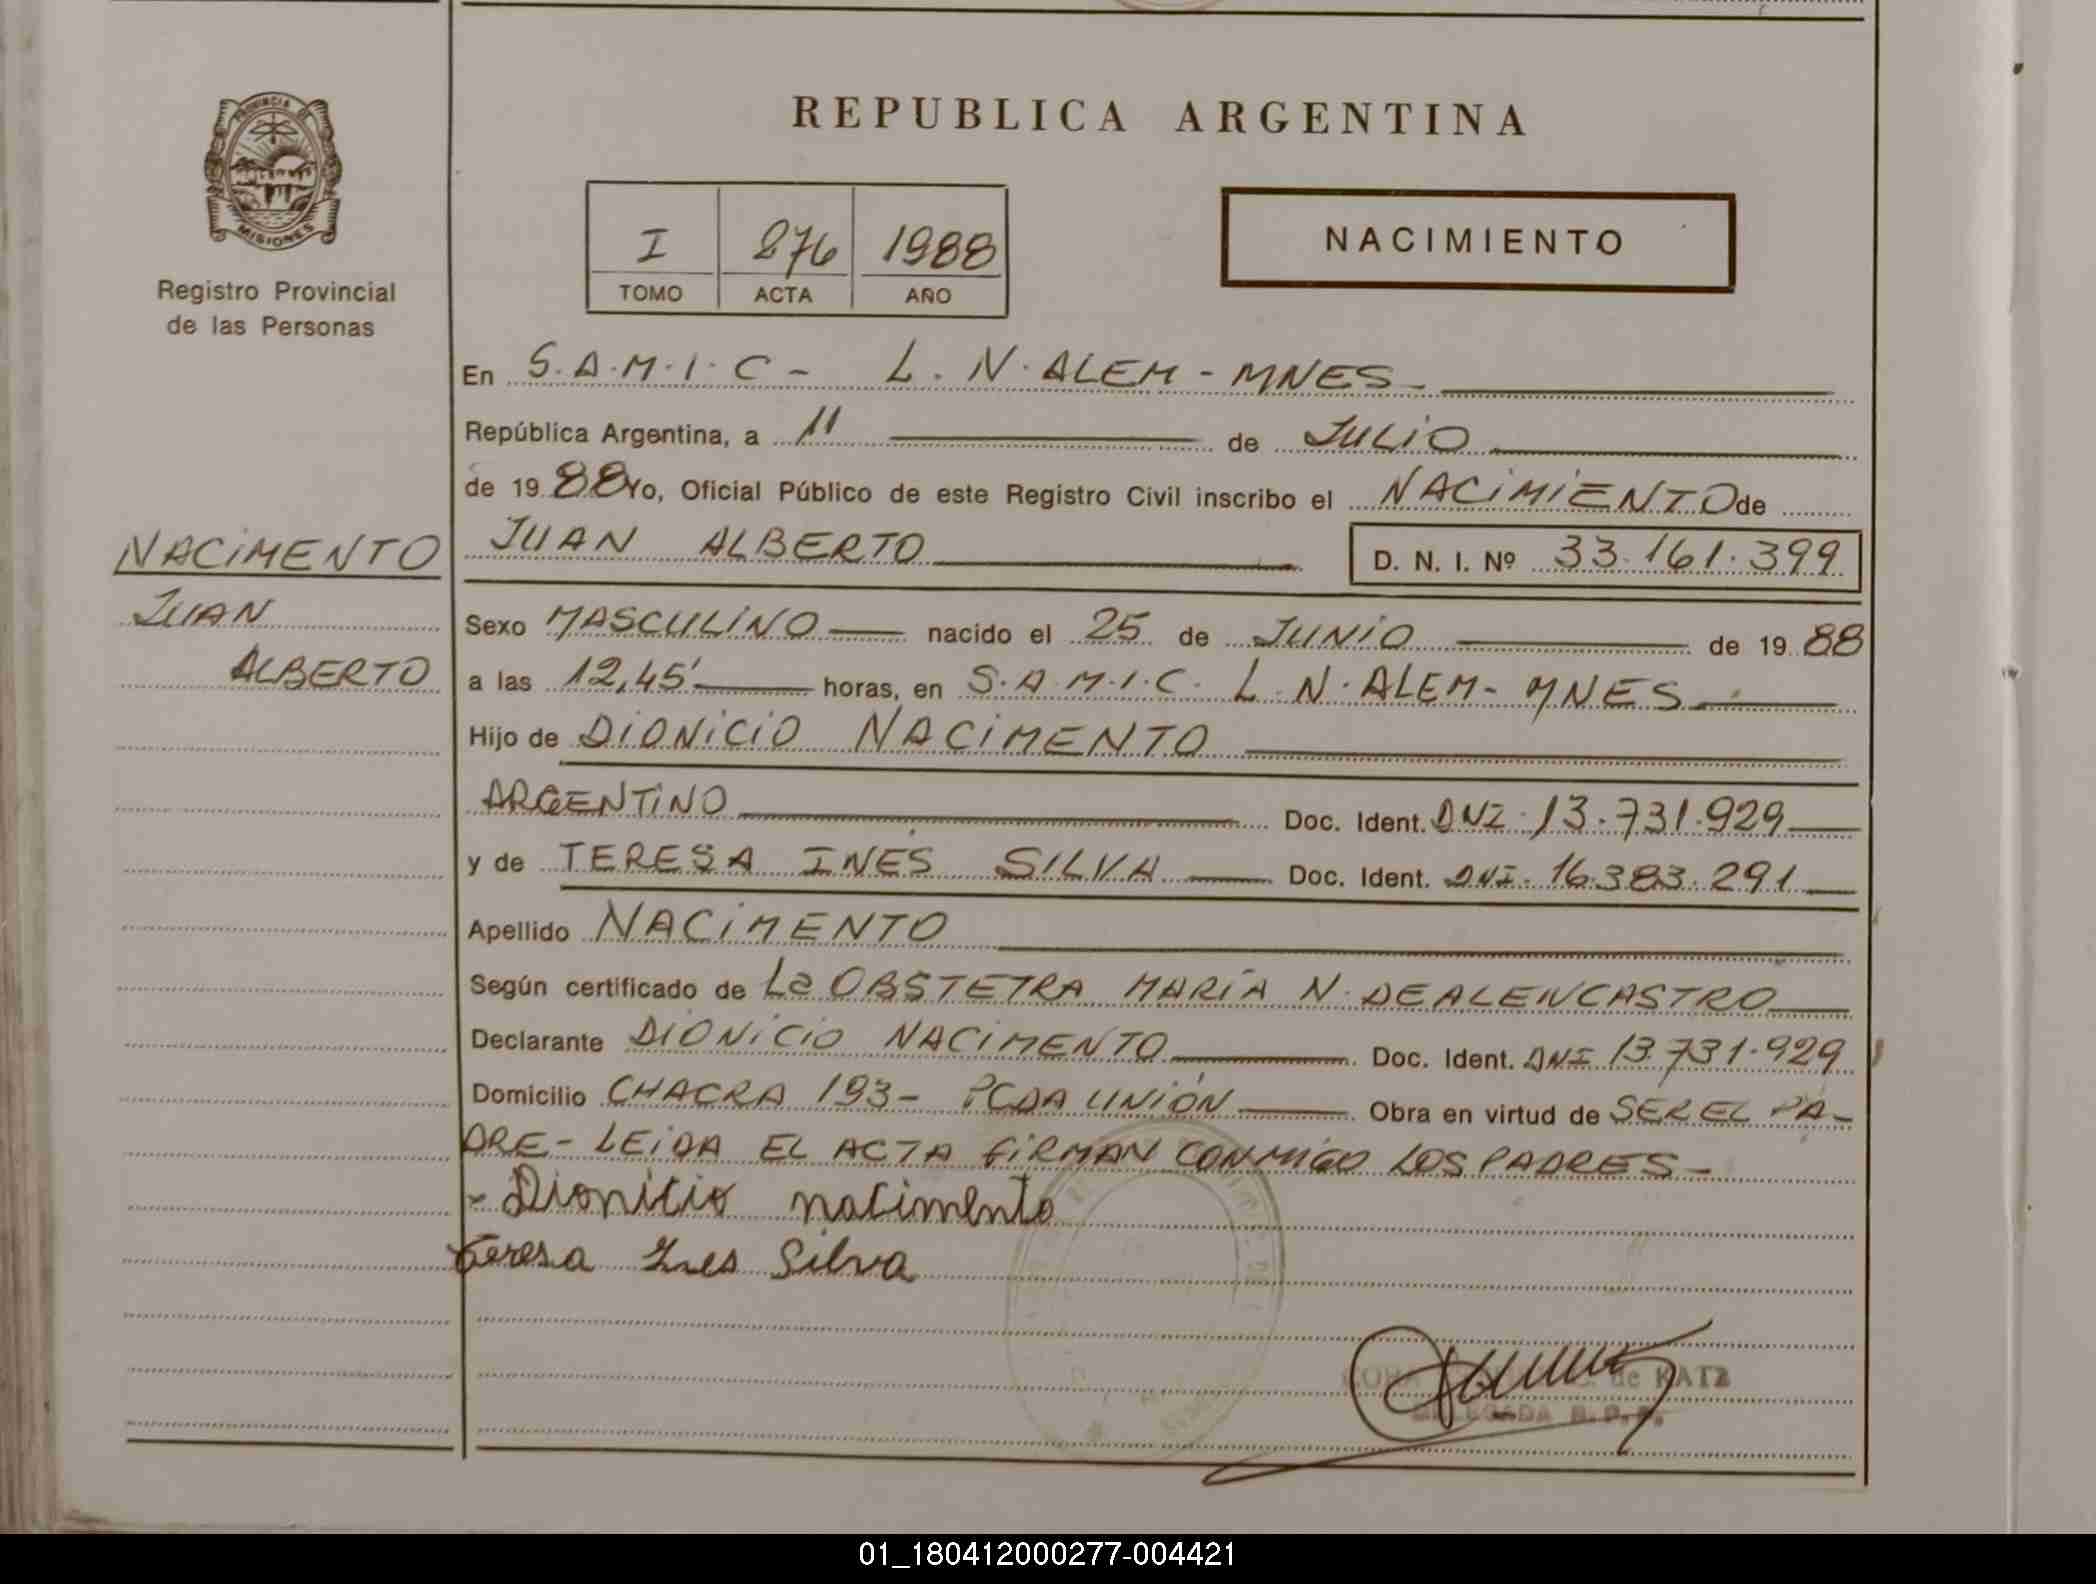 REPUBLICA ARGENTINA
PROVINCIA DE
MISIONES
Registro Provincial
de las Personas
I 276 1988
TOMO ACTA AÑO
NACIMIENTO
En S.A.M.I.C - L. N. ALEM - MNES -
República Argentina, a 11 de JULIO
de 1988 Yo, Oficial Público de este Registro Civil inscribo el NACIMIENTO de
JUAN ALBERTO D. N. I. Nº 33.161.399
NACIMENTO
JUAN
ALBERTO
Sexo MASCULINO nacido el 25 de JUNIO de 1988
a las 12,45' horas, en S.A.M.I.C. L. N. ALEM - MNES
Hijo de DIONICIO NACIMENTO
ARGENTINO Doc. Ident. DNI. 13.731.929
y de TERESA INES SILVA Doc. Ident. DNI. 16.383.291
Apellido NACIMENTO
Según certificado de La OBSTETRA MARÍA N. DEALENCASTRO
Declarante DIONICIO NACIMENTO Doc. Ident. DNI 13.731.929
Domicilio CHACRA 193 - PCDA UNIÓN Obra en virtud de SER EL PA-
DRE - LEIDA EL ACTA FIRMAN CONMIGO LOS PADRES -
- Dionicio nacimento
Teresa Ines Silva
de KATZ
DELEGADA R.P.P.
01_180412000277-004421